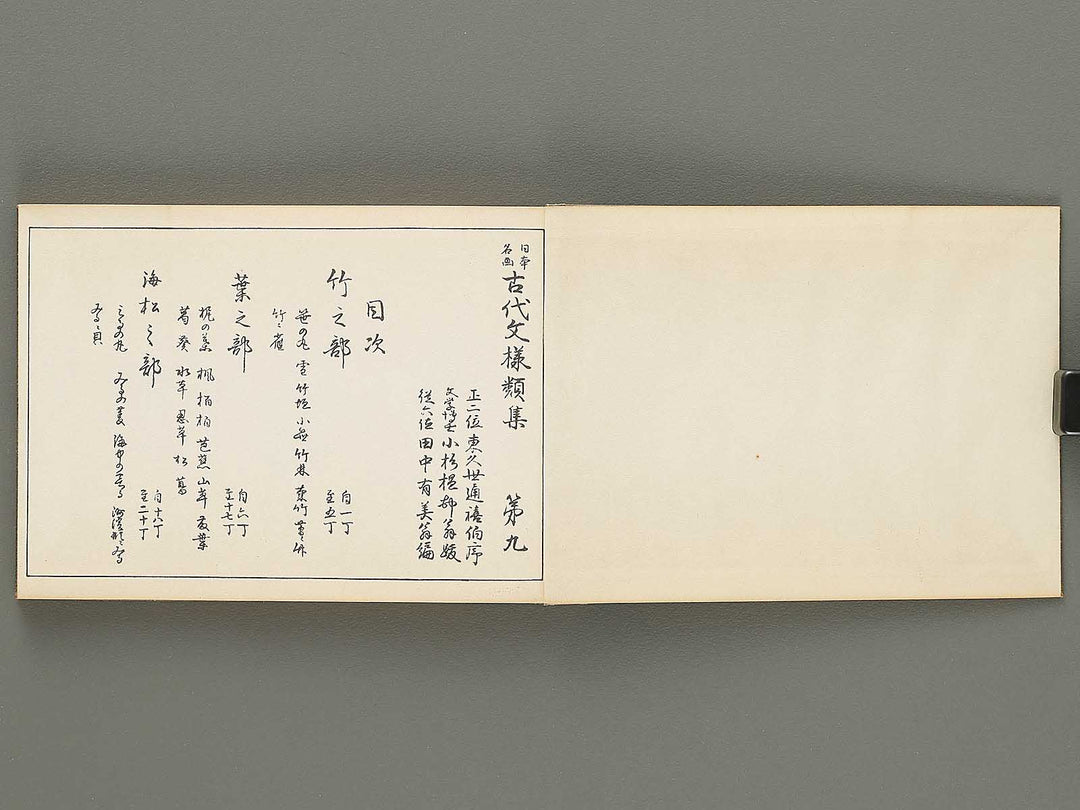 日本名画 古代文様類集 第九
正二位東久世通禧伯序
文学博士小杉榲邨翁閲
従六位田中有美翁編
目次
竹之部 自一丁至五丁
笹の丸 雪 竹垣 小 竹林 竹
竹ニ雀
葉之部 自六丁至十七丁
梶の葉 楓 柏 芭蕉 山草 葉
葛 葵 水草 忍草 松 蔦
海松之部 自十八丁至二十丁
みるの丸 海中の
貝